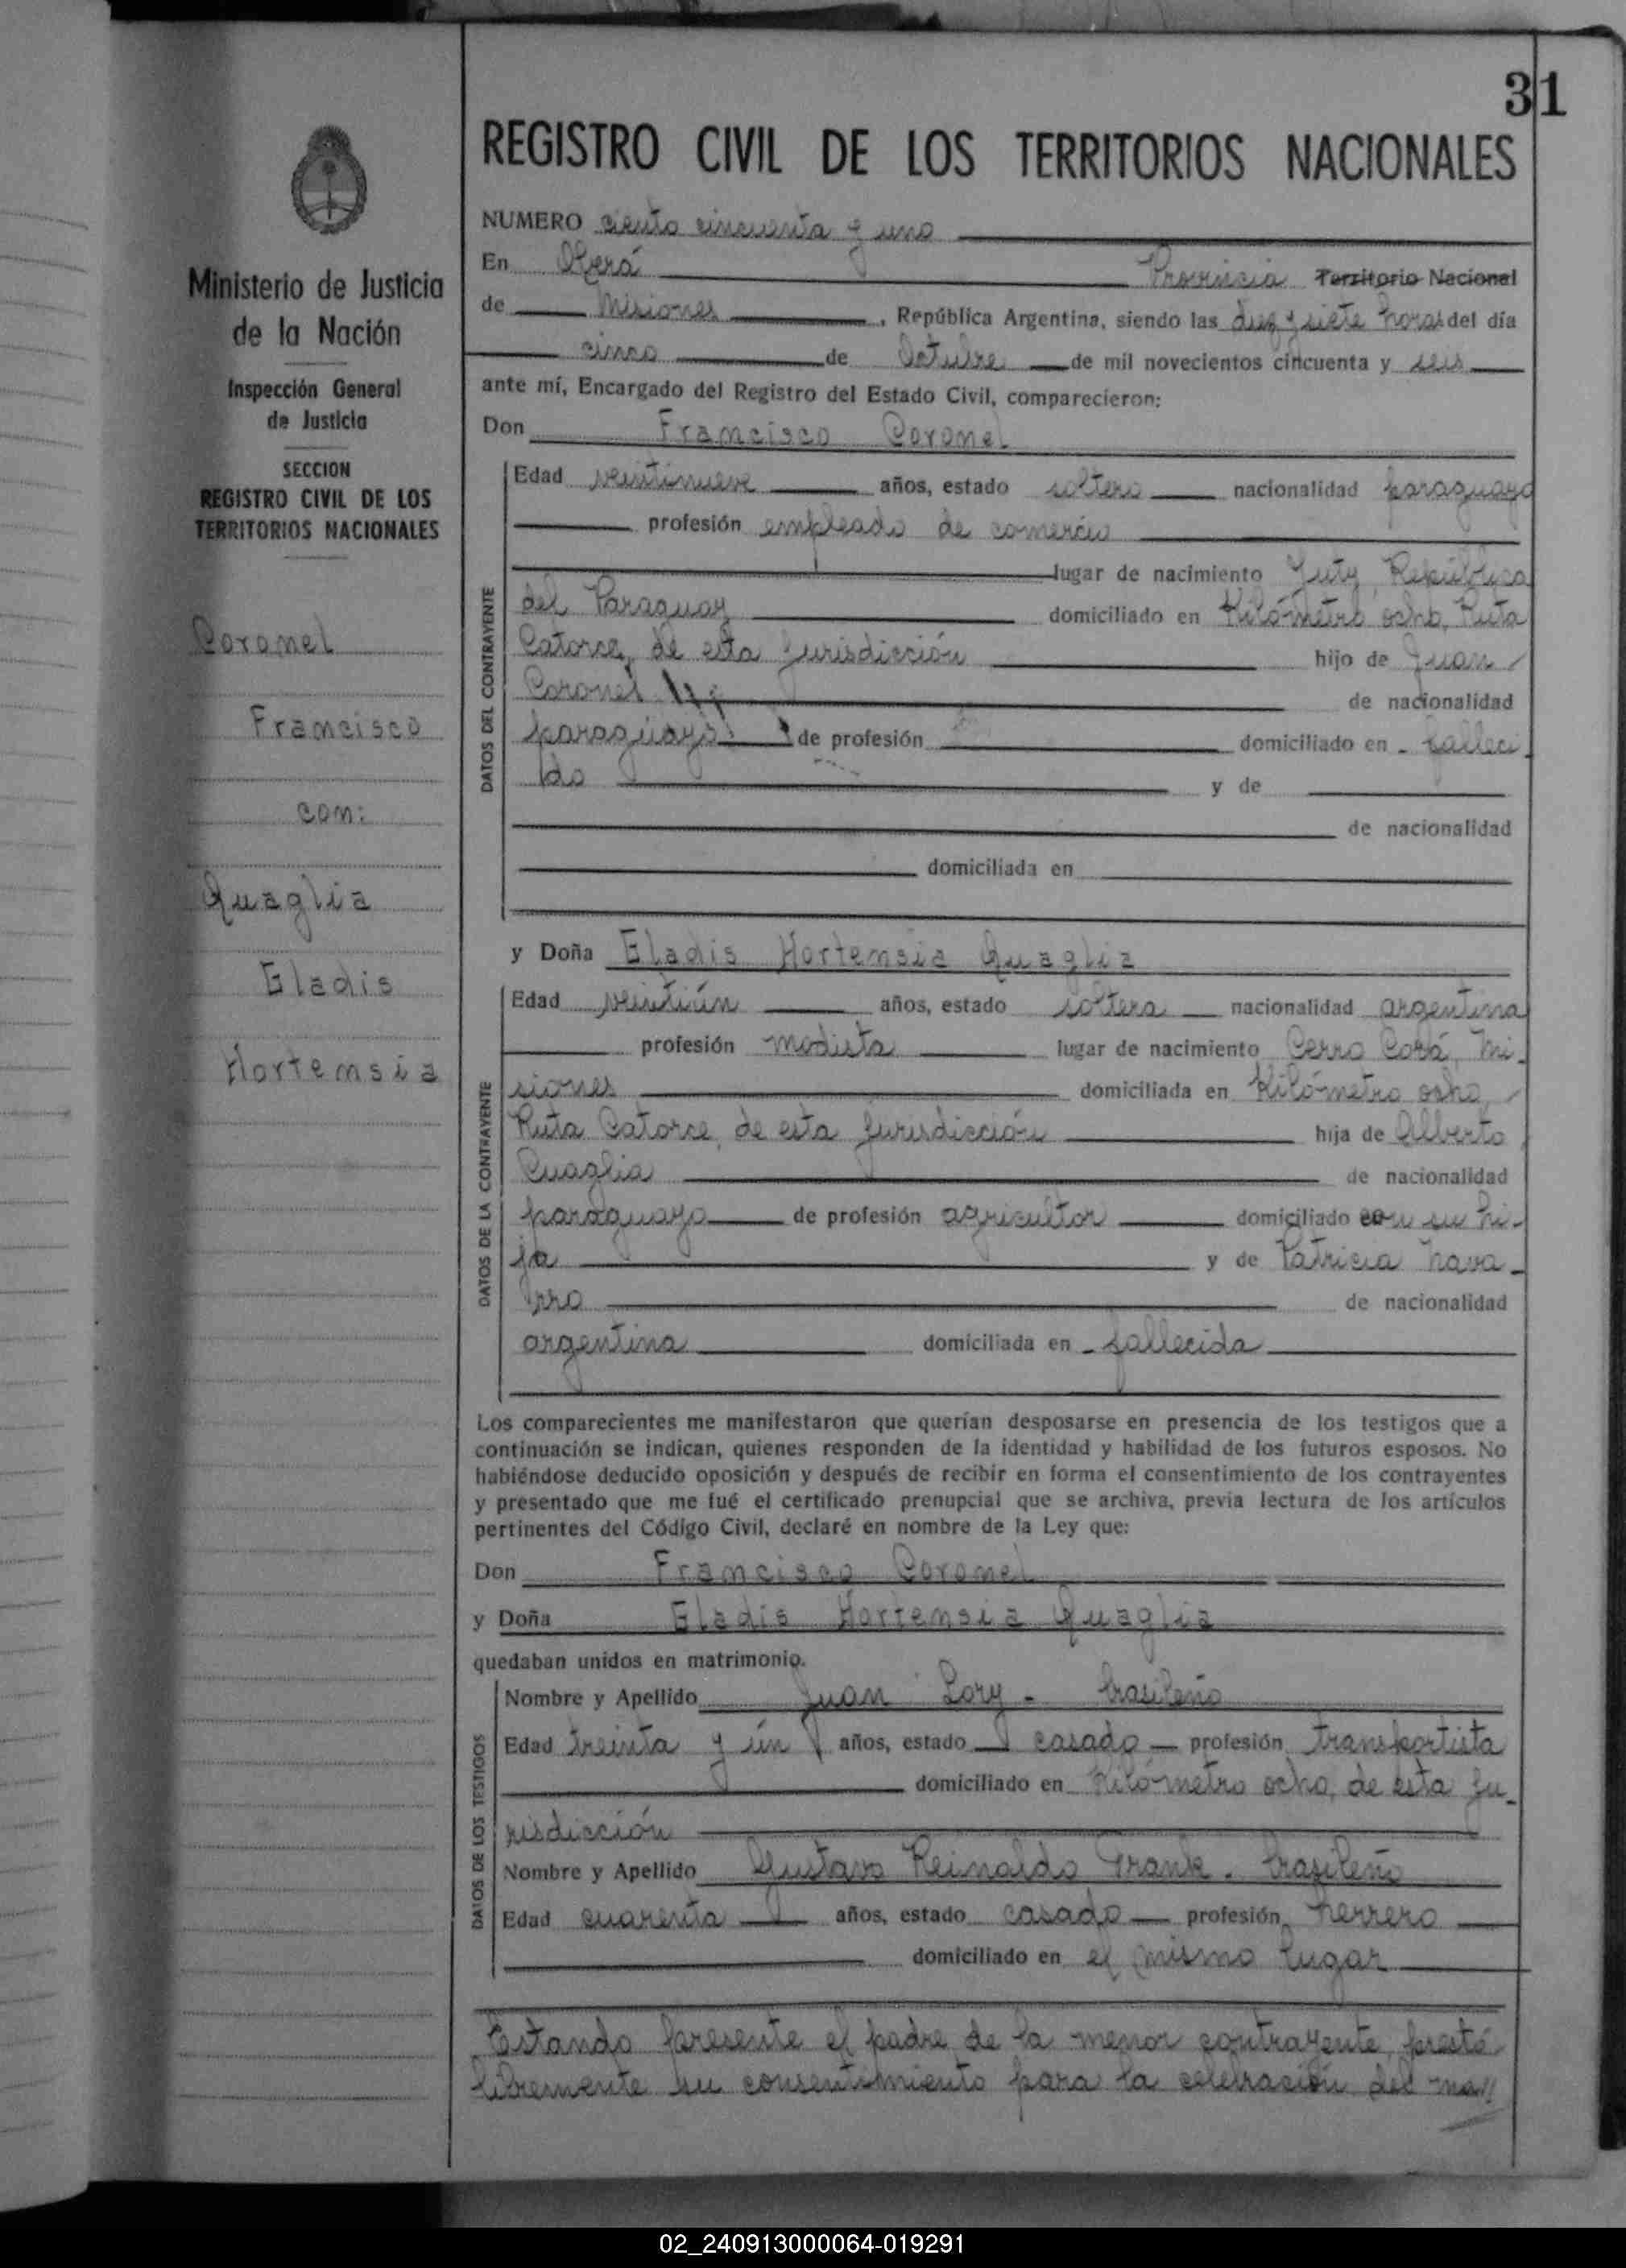 31
REGISTRO CIVIL DE LOS TERRITORIOS NACIONALES
Ministerio de Justicia
de la Nación
Inspección General
de Justicia
SECCION
REGISTRO CIVIL DE LOS
TERRITORIOS NACIONALES
Coronel
Francisco
con:
Quaglia
Gladis
Hortensia
NUMERO ciento cincuenta y uno
En Oberá Provincia Territorio Nacional
de Misiones, República Argentina, siendo las diez y siete horas del día
cinco de Octubre de mil novecientos cincuenta y seis
ante mí, Encargado del Registro del Estado Civil, comparecieron:
Don Francisco Coronel
DATOS DEL CONTRAYENTE
Edad veintinueve años, estado soltero nacionalidad paraguayo
profesión empleado de comercio
lugar de nacimiento Yuty, República
del Paraguay domiciliado en Kilómetro ocho, Ruta
Catorce, de esta jurisdicción hijo de Juan
Coronel de nacionalidad
paraguayo de profesión domiciliado en - falleci-
do y de
de nacionalidad
domiciliada en
y Doña Gladis Hortensia Quaglia
DATOS DE LA CONTRAYENTE
Edad veintiún años, estado soltera nacionalidad argentina
profesión modista lugar de nacimiento Cerro Corá, Mi-
siones domiciliada en Kilómetro ocho,
Ruta Catorce, de esta jurisdicción hija de Alberto
Cuaglia de nacionalidad
paraguayo de profesión agricultor domiciliado con su hi-
ja y de Patricia Nava-
rro de nacionalidad
argentina domiciliada en - fallecida
Los comparecientes me manifestaron que querían desposarse en presencia de los testigos que a
continuación se indican, quienes responden de la identidad y habilidad de los futuros esposos. No
habiéndose deducido oposición y después de recibir en forma el consentimiento de los contrayentes
y presentado que me fué el certificado prenupcial que se archiva, previa lectura de los artículos
pertinentes del Código Civil, declaré en nombre de la Ley que:
Don Francisco Coronel
y Doña Gladis Hortensia Quaglia
quedaban unidos en matrimonio.
DATOS DE LOS TESTIGOS
Nombre y Apellido Juan Lory - brasileño
Edad treinta y ún años, estado casado profesión transportista
domiciliado en Kilómetro ocho, de esta ju-
risdicción
Nombre y Apellido Gustavo Reinaldo Frank - brasileño
Edad cuarenta años, estado casado profesión herrero
domiciliado en el mismo lugar
Estando presente el padre de la menor contrayente, prestó
libremente su consentimiento para la celebración del ma//
02_240913000064-019291